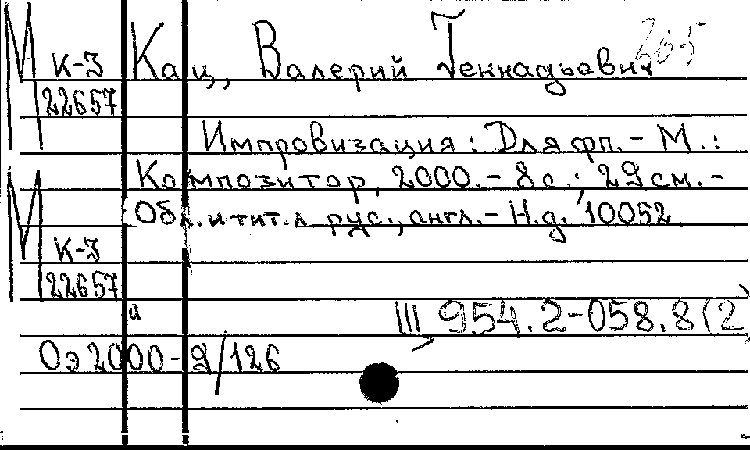 М К-3 Кац, Валерий Геннадьевич 265
22657
Импровизация: Для фп. - М.:
Композитор, 2000. - 8 с.; 29 см. -
Обл. и тит. л. рус., англ. - Н.д. 10052
М К-3
22657
а
III 954.2-058.8(2
Оэ 2000-9/126